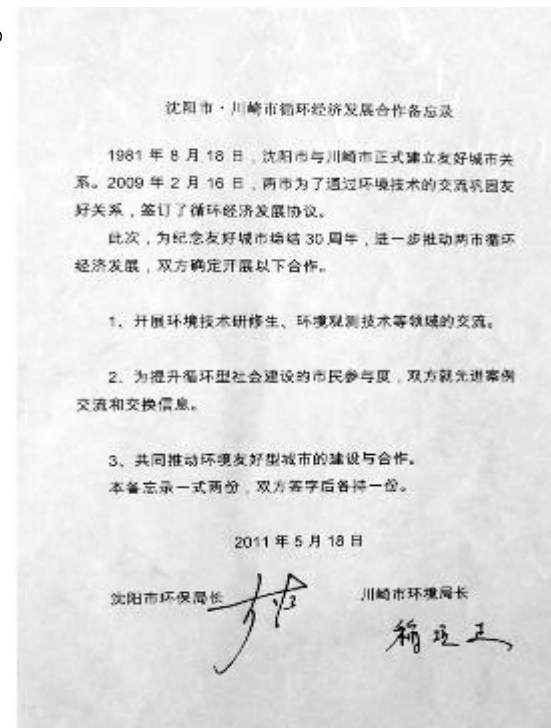 沈阳市·川崎市循环经济发展合作备忘录
1981 年 8 月 18 日，沈阳市与川崎市正式建立友好城市关
系。2009 年 2 月 16 日，两市为了通过环境技术的交流巩固友
好关系，签订了循环经济发展协议。
此次，为纪念友好城市缔结 30 周年，进一步推动两市循环
经济发展，双方确定开展以下合作。
1、开展环境技术研修生、环境观测技术等领域的交流。
2、为提升循环型社会建设的市民参与度，双方就先进案例
交流和交换信息。
3、共同推动环境友好型城市的建设与合作。
本备忘录一式两份，双方签字后各持一份。
2011 年 5 月 18 日
沈阳市环保局长
川崎市环境局长